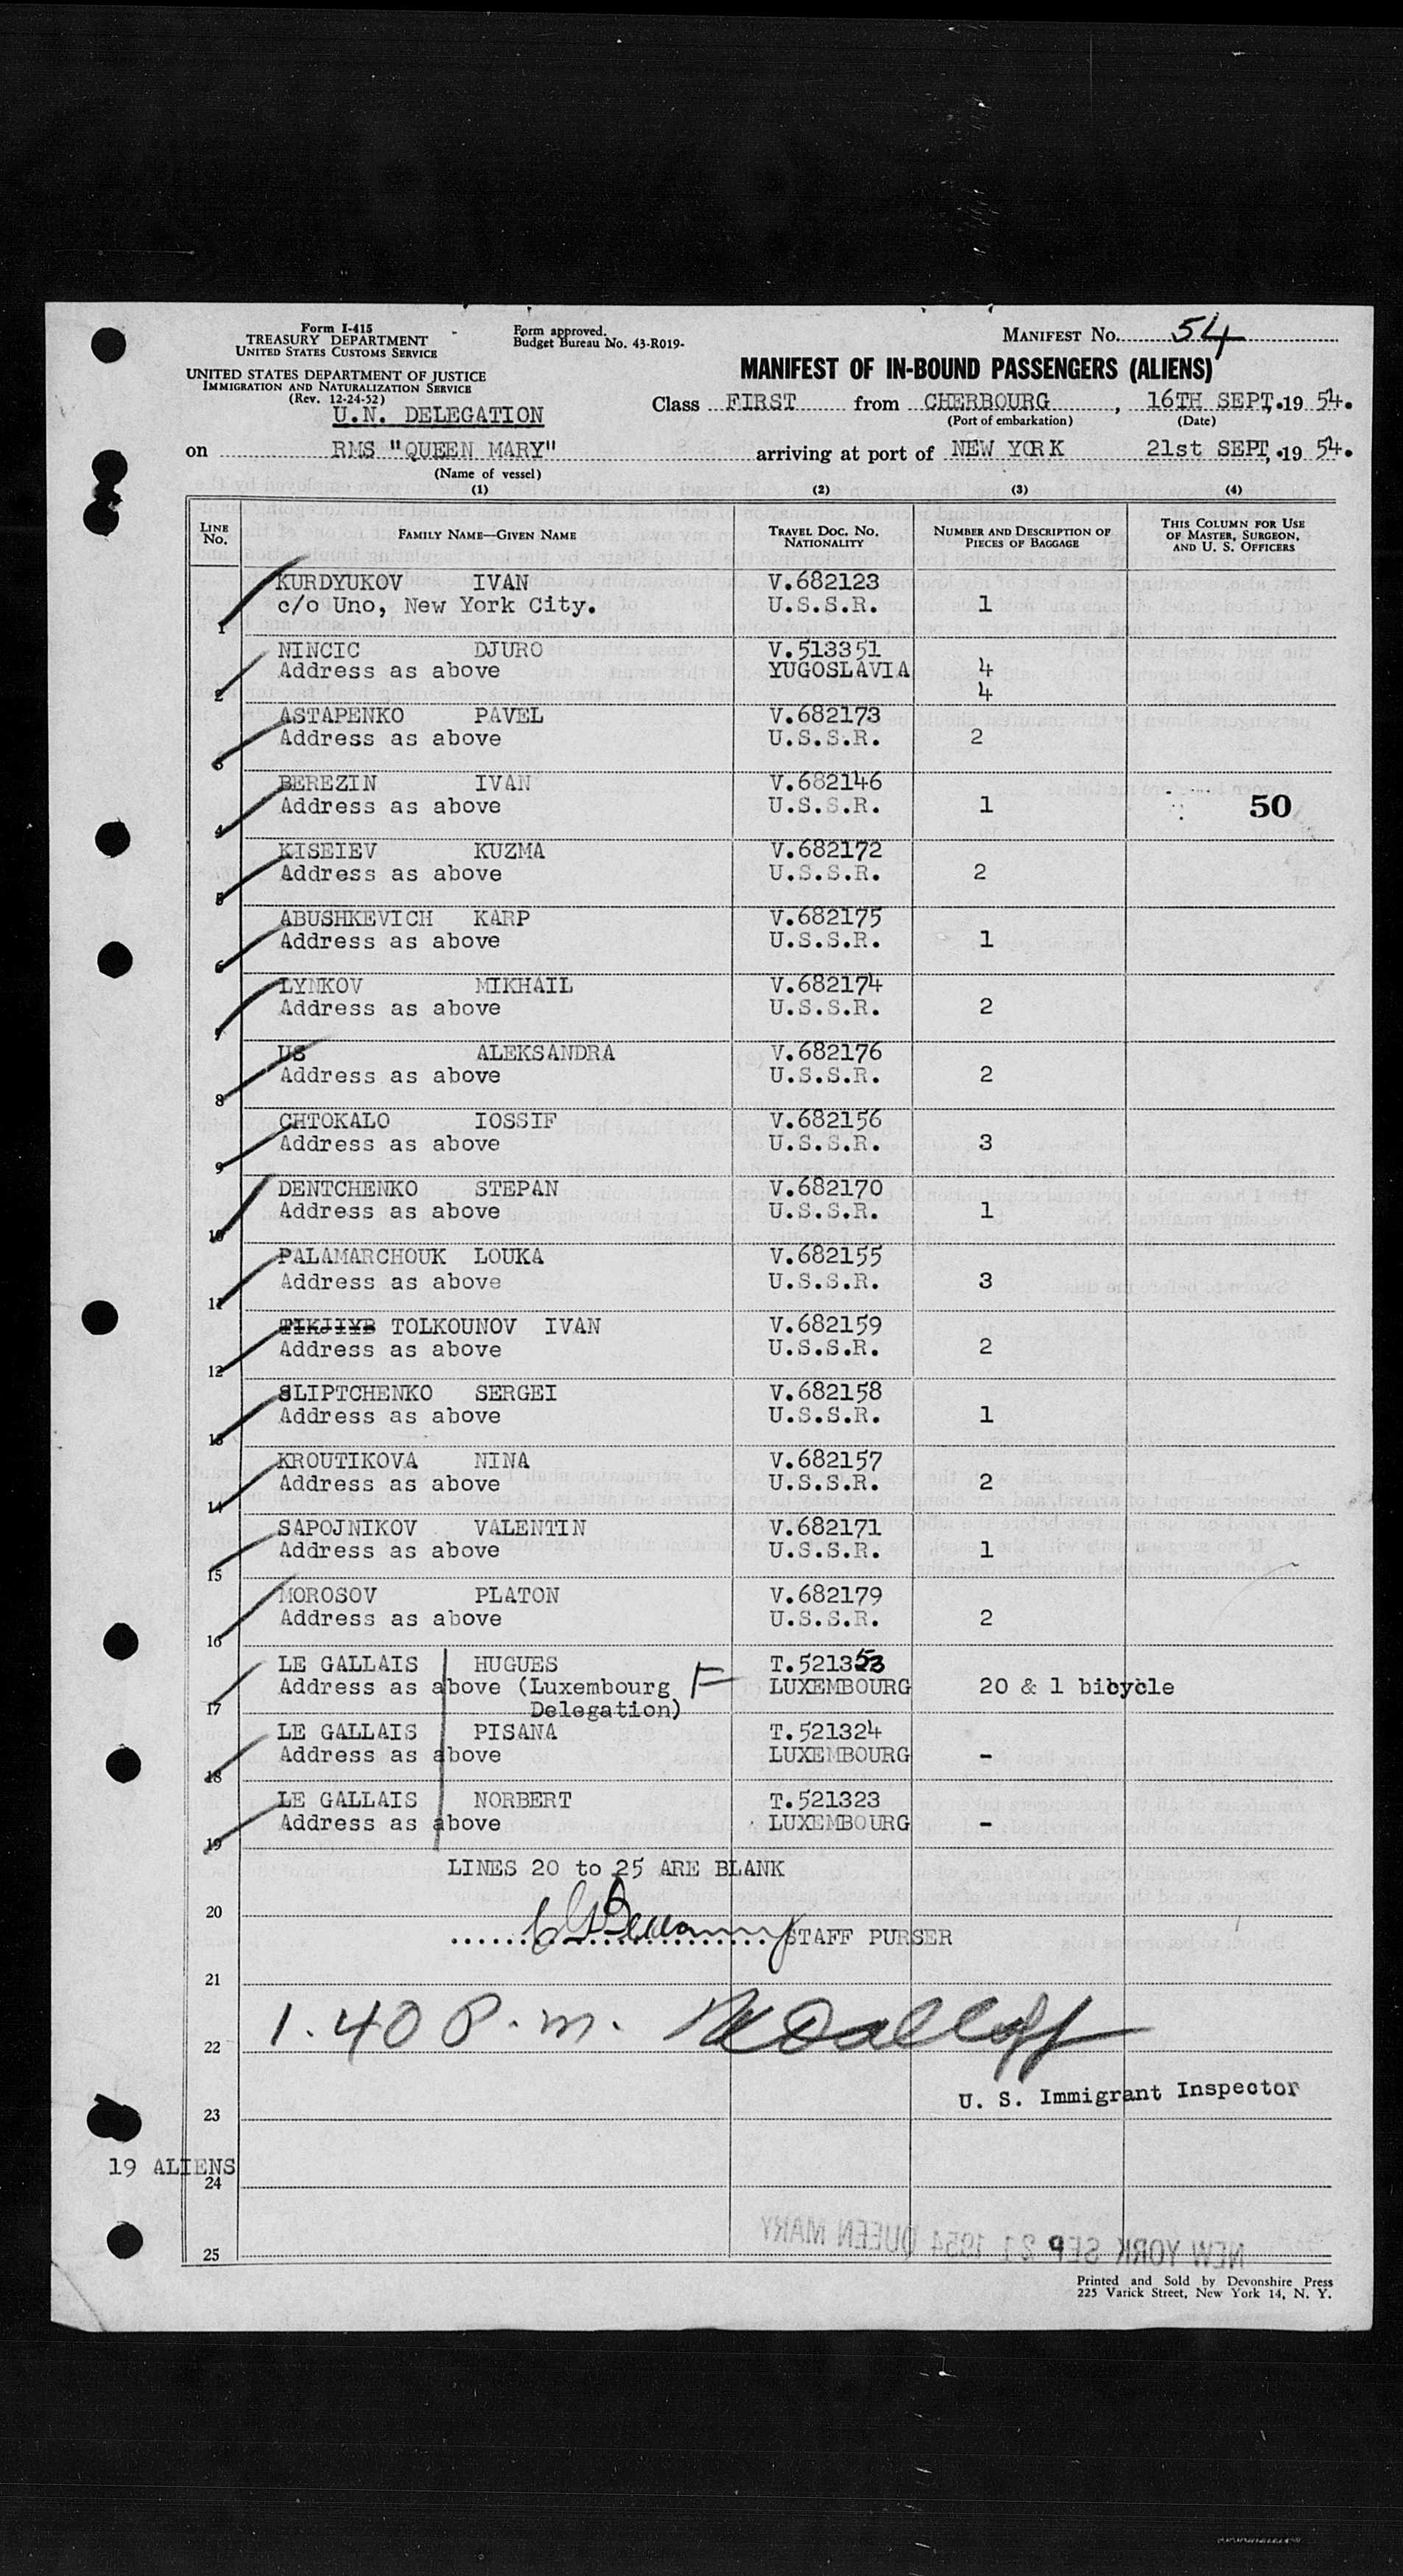 Form I-415
TREASURY DEPARTMENT
UNITED STATES CUSTOMS SERVICE
Form approved.
Budget Bureau No. 43-R019-
MANIFEST No. 54
UNITED STATES DEPARTMENT OF JUSTICE
IMMIGRATION AND NATURALIZATION SERVICE
(Rev. 12-24-52)
MANIFEST OF IN-BOUND PASSENGERS (ALIENS)
U.N. DELEGATION
Class FIRST from CHERBOURG, 16TH SEPT, 19 54.
(Port of embarkation) (Date)
on RMS "QUEEN MARY" arriving at port of NEW YORK 21st SEPT, 19 54.
(Name of vessel)
(1) (2) (3) (4)
LINE No. FAMILY NAME—GIVEN NAME TRAVEL DOC. NO. NATIONALITY NUMBER AND DESCRIPTION OF PIECES OF BAGGAGE THIS COLUMN FOR USE OF MASTER, SURGEON, AND U. S. OFFICERS
KURDYUKOV IVAN V.682123
1 c/o Uno, New York City. U.S.S.R. 1
NINCIC DJURO V.513351
2 Address as above YUGOSLAVIA 4
4
ASTAPENKO PAVEL V.682173
3 Address as above U.S.S.R. 2
BEREZIN IVAN V.682146
4 Address as above U.S.S.R. 1 50
KISEIEV KUZMA V.682172
5 Address as above U.S.S.R. 2
ABUSHKEVICH KARP V.682175
6 Address as above U.S.S.R. 1
LYNKOV MIKHAIL V.682174
7 Address as above U.S.S.R. 2
US ALEKSANDRA V.682176
8 Address as above U.S.S.R. 2
CHTOKALO IOSSIF V.682156
9 Address as above U.S.S.R. 3
DENTCHENKO STEPAN V.682170
10 Address as above U.S.S.R. 1
PALAMARCHOUK LOUKA V.682155
11 Address as above U.S.S.R. 3
TOLKOUNOV IVAN V.682159
12 Address as above U.S.S.R. 2
SLIPTCHENKO SERGEI V.682158
13 Address as above U.S.S.R. 1
KROUTIKOVA NINA V.682157
14 Address as above U.S.S.R. 2
SAPOJNIKOV VALENTIN V.682171
15 Address as above U.S.S.R. 1
MOROSOV PLATON V.682179
16 Address as above U.S.S.R. 2
LE GALLAIS HUGUES T.521353
17 Address as above (Luxembourg F LUXEMBOURG 20 & 1 bicycle
Delegation)
LE GALLAIS PISANA T.521324
18 Address as above LUXEMBOURG -
LE GALLAIS NORBERT T.521323
19 Address as above LUXEMBOURG -
LINES 20 to 25 ARE BLANK
20
STAFF PURSER
21
1.40 P.m.
22
U. S. Immigrant Inspector
23
19 ALIENS
24
NEW YORK SEP 21 1954 QUEEN MARY
25
Printed and Sold by Devonshire Press
225 Varick Street, New York 14, N. Y.